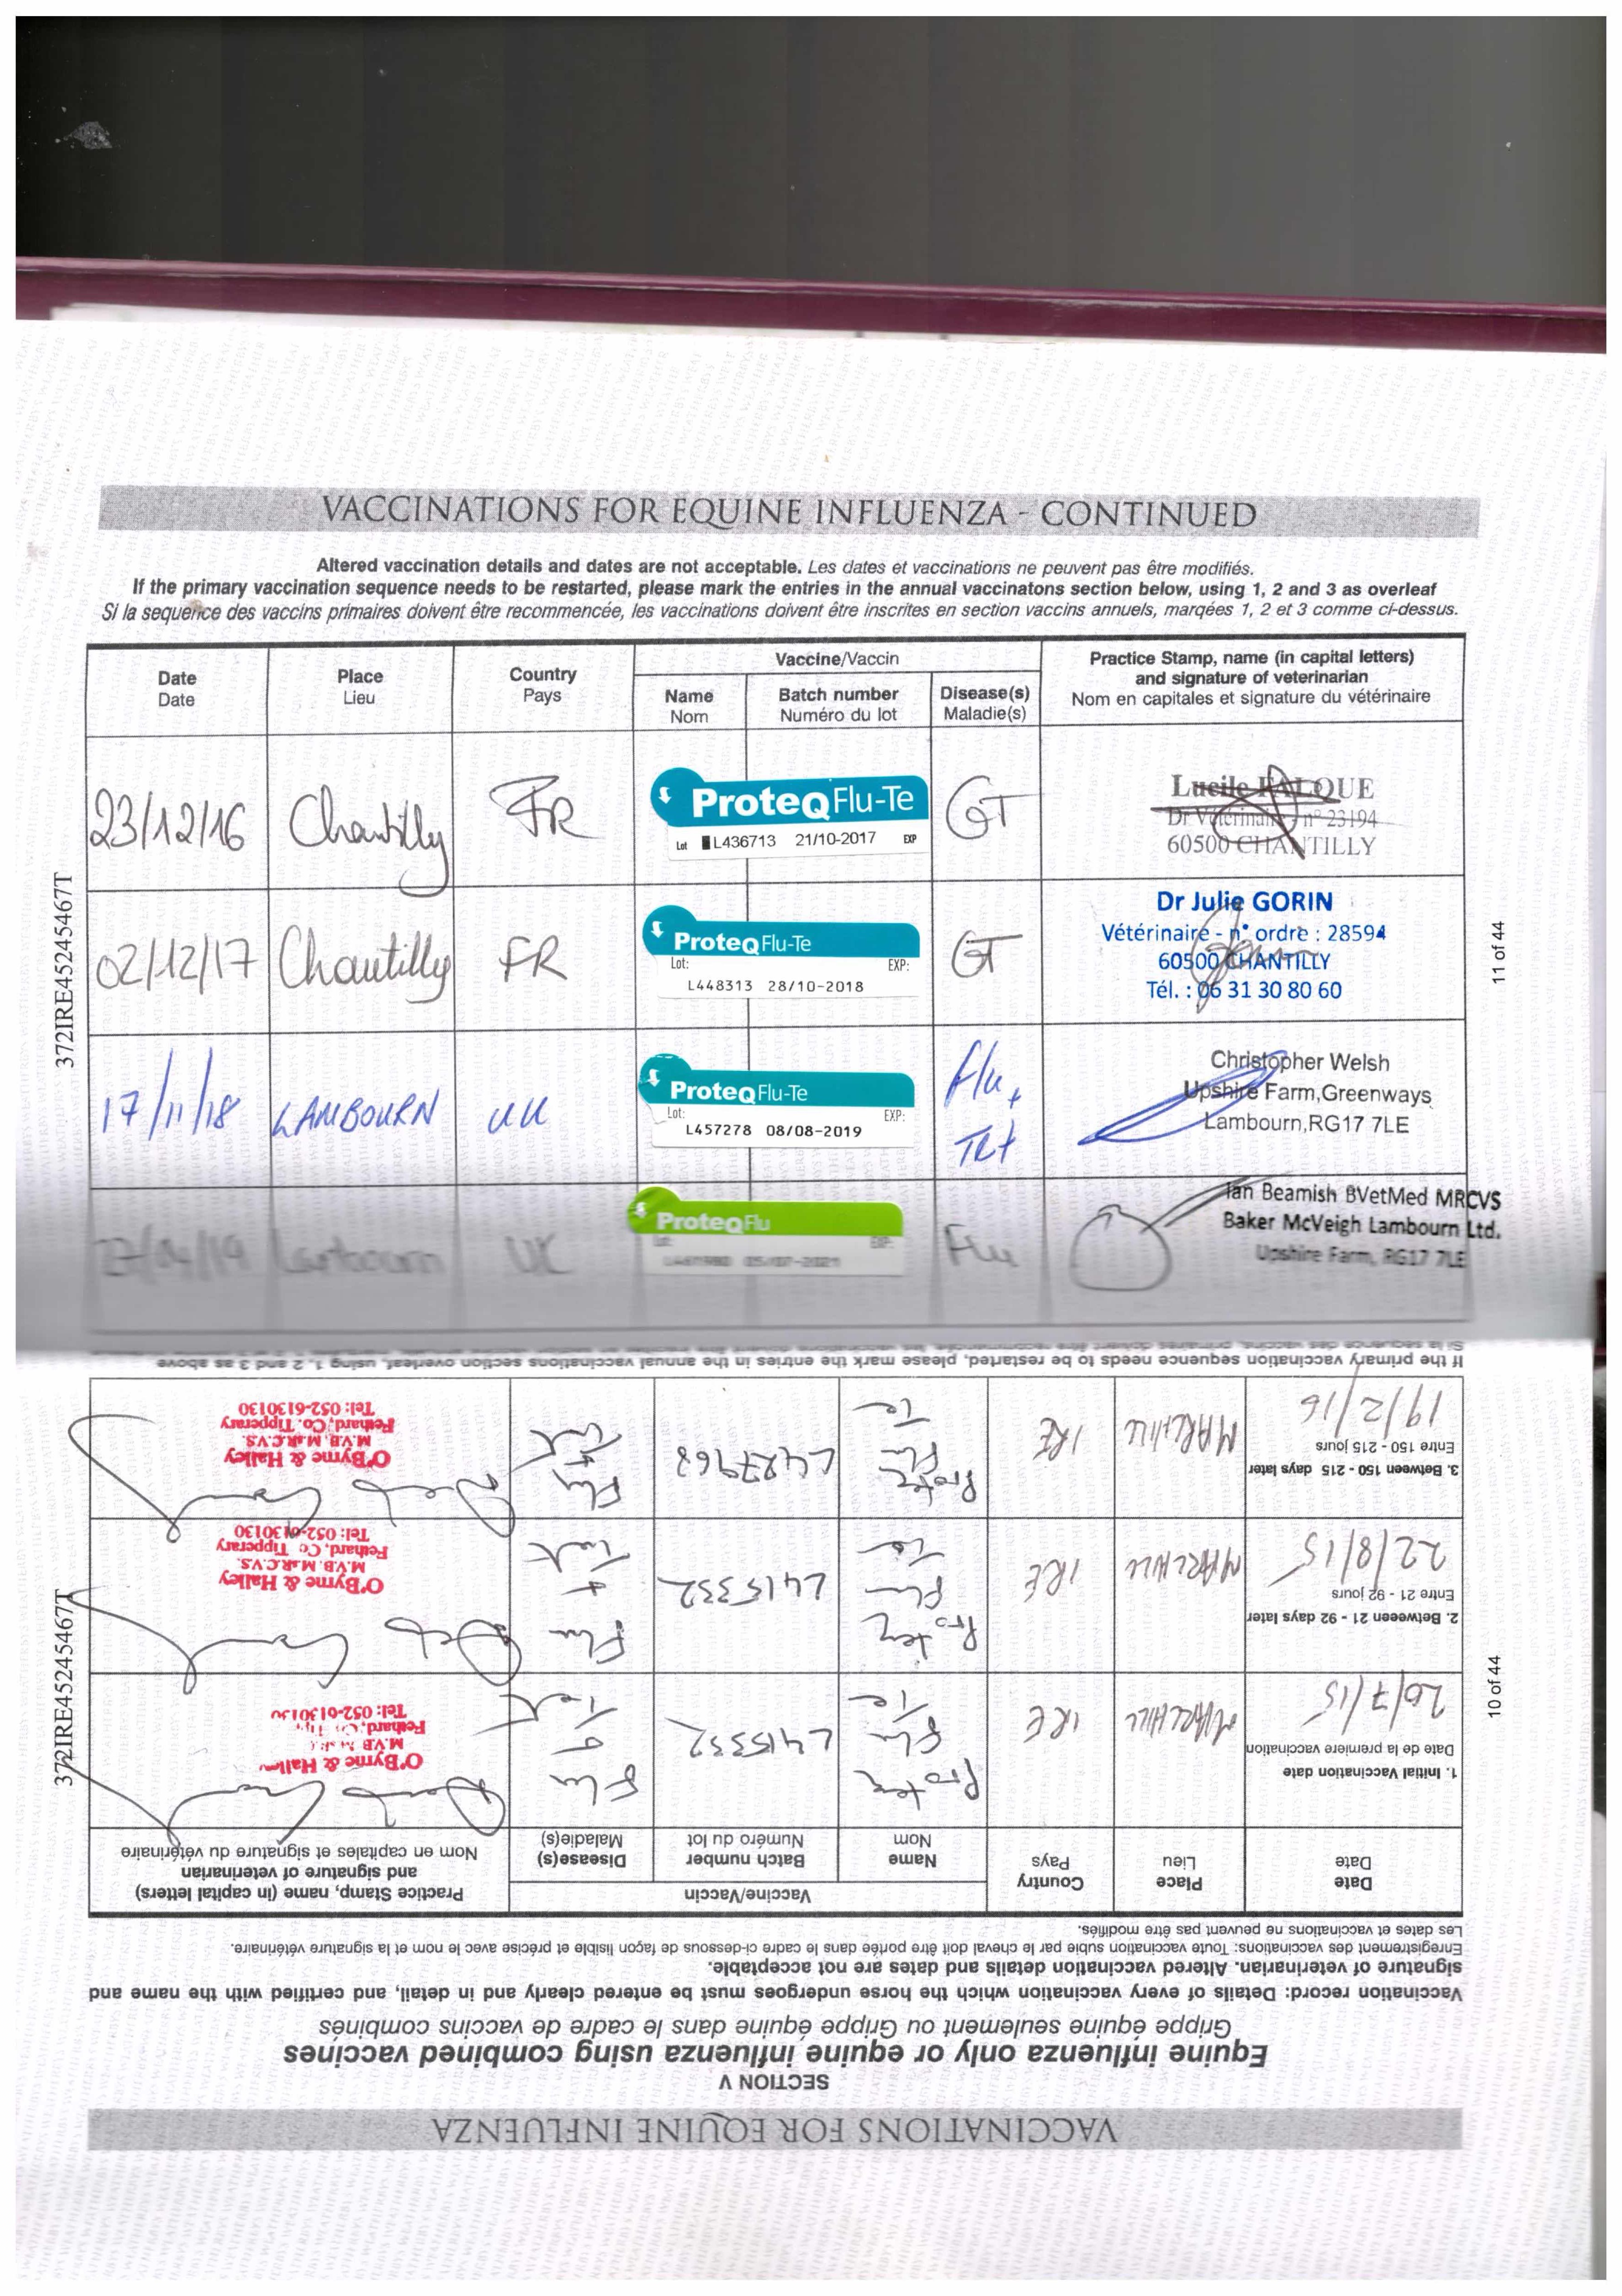 VACCINATIONS FOR EQUINE INFLUENZA - CONTINUED
Altered vaccination details and dates are not acceptable. Les dates et vaccinations ne peuvent pas être modifiés.
If the primary vaccination sequence needs to be restarted, please mark the entries in the annual vaccinatons section below, using 1, 2 and 3 as overleaf
Si la sequence des vaccins primaires doivent être recommencée, les vaccinations doivent être inscrites en section vaccins annuels, marqées 1, 2 et 3 comme ci-dessus.
Date
Date
Place
Lieu
Country
Pays
Vaccine/Vaccin
Name
Nom
Batch number
Numéro du lot
Disease(s)
Maladie(s)
Practice Stamp, name (in capital letters)
and signature of veterinarian
Nom en capitales et signature du vétérinaire
23/12/16
Chantilly
FR
ProteqFlu-Te
Lot L436713 21/10-2017 EXP
GT
Lucile FALQUE
Dr Vétérinaire n° 23194
60500 CHANTILLY
02/12/17
Chantilly
FR
ProteqFlu-Te
Lot: EXP:
L448313 28/10-2018
GT
Dr Julie GORIN
Vétérinaire - n° ordre : 28594
60500 CHANTILLY
Tél. : 06 31 30 80 60
17/11/18
LAMBOURN
UK
ProteqFlu-Te
Lot: EXP:
L457278 08/08-2019
Flu +
Tet
Christopher Welsh
Upshire Farm,Greenways
Lambourn,RG17 7LE
27/04/19
Lambourn
UK
ProteqFlu
Lot: EXP:
05/07-2021
Flu
Ian Beamish BVetMed MRCVS
Baker McVeigh Lambourn Ltd.
Upshire Farm, RG17 7LE
372IRE45245467T
11 of 44
VACCINATIONS FOR EQUINE INFLUENZA
SECTION V
Equine influenza only or equine influenza using combined vaccines
Grippe équine seulement ou Grippe équine dans le cadre de vaccins combinés
Vaccination record: Details of every vaccination which the horse undergoes must be entered clearly and in detail, and certified with the name and
signature of veterinarian. Altered vaccination details and dates are not acceptable.
Enregistrement des vaccinations: Toute vaccination subie par le cheval doit être portée dans le cadre ci-dessous de façon lisible et précise avec le nom et la signature vétérinaire.
Les dates et vaccinations ne peuvent pas être modifiés.
Date
Date
Place
Lieu
Country
Pays
Vaccine/Vaccin
Name
Nom
Batch number
Numéro du lot
Disease(s)
Maladie(s)
Practice Stamp, name (in capital letters)
and signature of veterinarian
Nom en capitales et signature du vétérinaire
1. Initial Vaccination date
Date de la premiere vaccination
20/7/15
MARLHILL
IRE
Proteq
Flu
Te
L415332
Flu
+
Tet
O'Byrne & Halley
M.V.B. M.R.C.V.S.
Fethard, Co. Tipp
Tel: 052-6130130
2. Between 21 - 92 days later
Entre 21 - 92 jours
22/8/15
MARLHILL
IRE
Pro
teq
Flu
Te
L415332
Flu
+
Tet
O'Byrne & Halley
M.V.B. M.R.C.V.S.
Fethard, Co Tipperary
Tel: 052-6130130
3. Between 150 - 215 days later
Entre 150 - 215 jours
19/2/16
MARLHILL
IRE
Proteq
Flu
Te
L427968
Flu
+
Tet
O'Byrne & Halley
M.V.B. M.R.C.V.S.
Fethard, Co. Tipperary
Tel: 052-6130130
If the primary vaccination sequence needs to be restarted, please mark the entries in the annual vaccinations section overleaf, using 1, 2 and 3 as above
372IRE45245467T
10 of 44